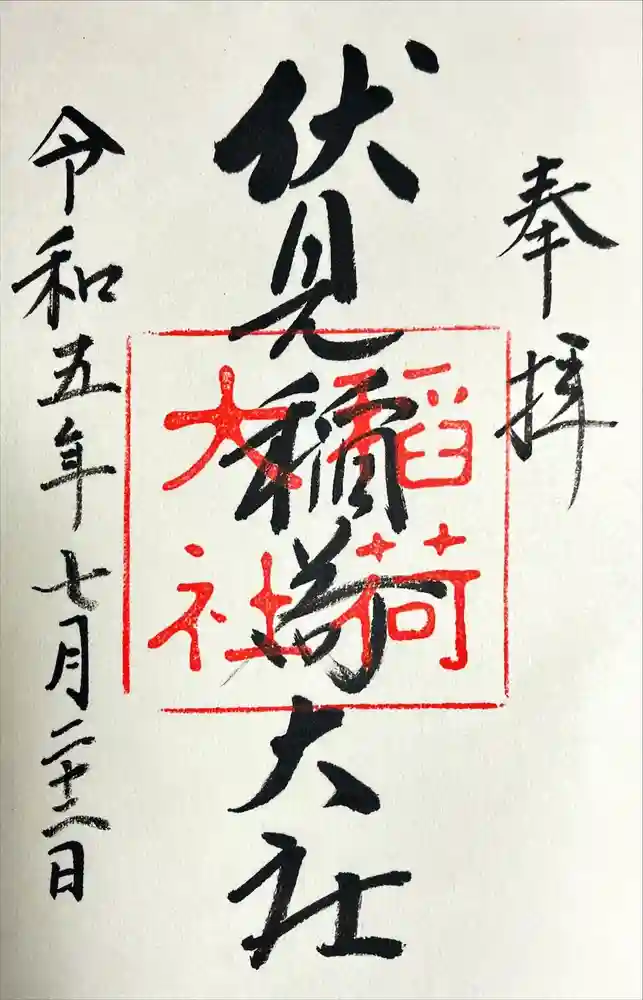 奉拝
伏見稲荷大社
稲荷
大社
令和五年七月二十二日